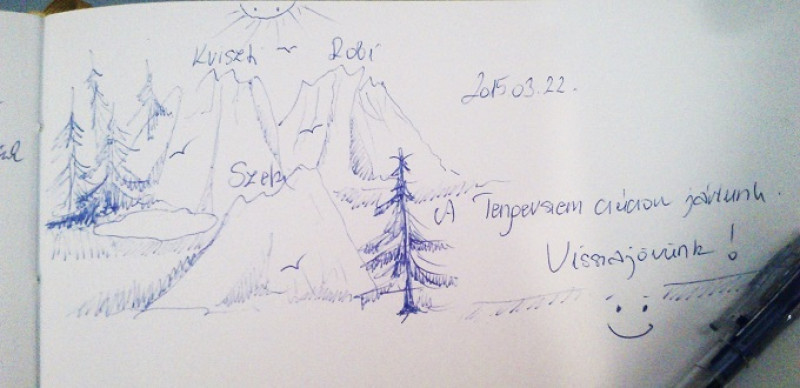 Kriszti Robi
2015 03.22.
A Tengerszem csúcson jártunk.
Visszajövünk!